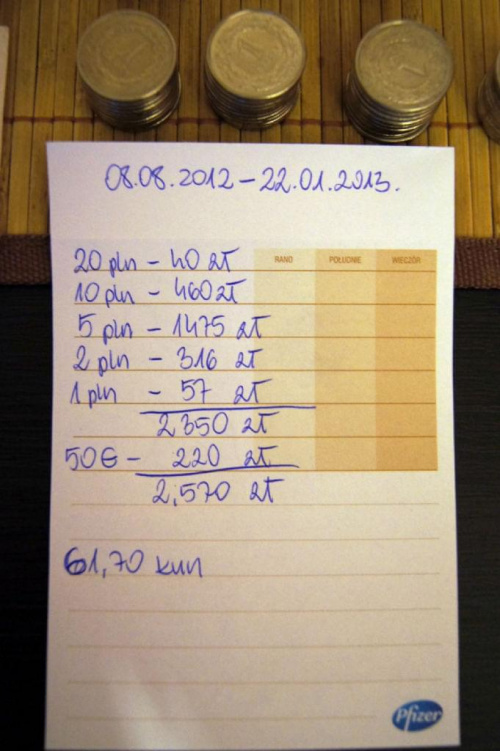 08.08.2012 – 22.01.2013.
RANO POŁUDNIE WIECZÓR
20 pln – 40 zł
10 pln – 460 zł
5 pln – 1475 zł
2 pln – 316 zł
1 pln – 57 zł
2350 zł
50 € – 220 zł
2,570 zł
61,70 kun
Pfizer
1
1
1